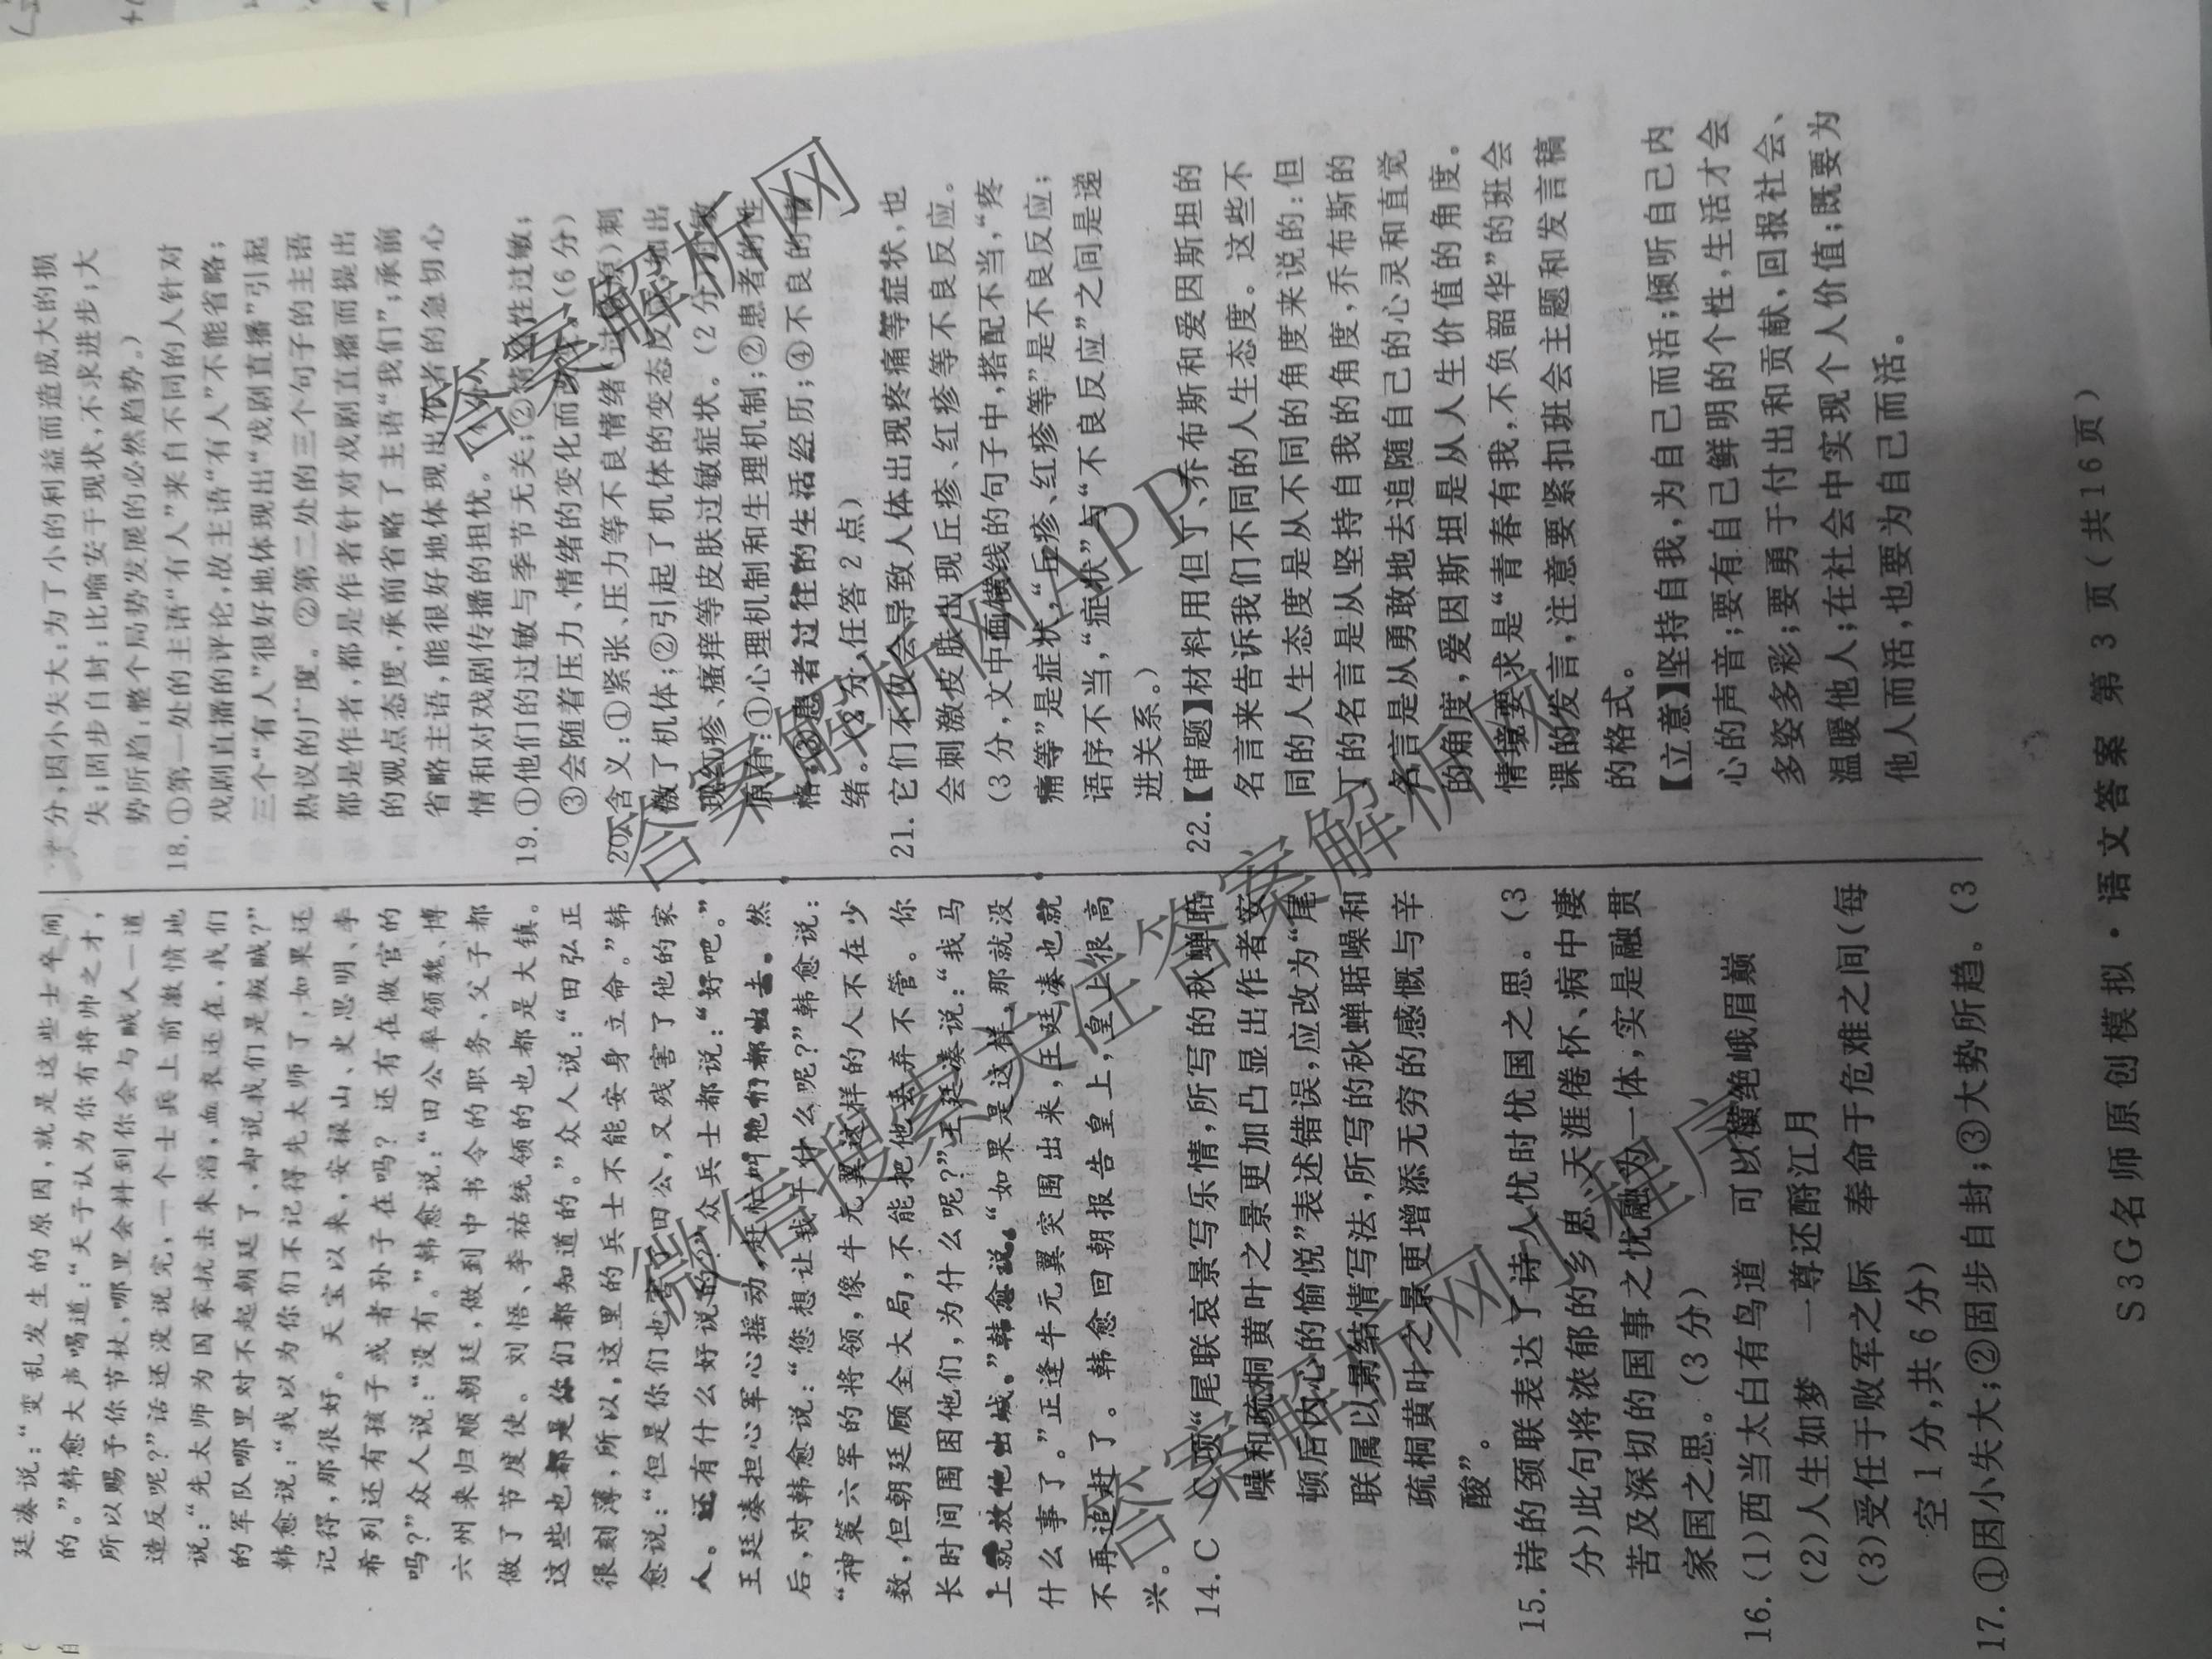 廷凑说：“变乱发生的原因，就是这些士卒间
的。”韩愈大声喝道：“天子认为你有将帅之才，
所以赐予你节杖，哪里会料到你会与贼人一道
造反呢？”话还没说完，一个士兵上前激愤地
说：“先太师为国家抗击朱滔，血衣还在，我们
的军队哪里对不起朝廷了，却说我们是叛贼？”
韩愈说：“我以为你们不记得先太师了，如果还
记得，那很好。天宝以来，安禄山、史思明、李
希列还有孩子或者孙子在吗？还有在做官的
吗？”众人说：“没有。”韩愈说：“田公率领魏、博
六州来归顺朝廷，做到中书令的职务、父子都
做了节度使。刘悟、李祐统领的也都是大镇。
这些也都是你们都知道的。”众人说：“田弘正
很刻薄，所以，这里的兵士不能安身立命。”韩
愈说：“但是你们也害田公，又残害了他的家
人。还有什么好说的？”众兵士都说：“好吧。”
王廷凑担心军心摇动，赶忙叫他们都出去。然
后，对韩愈说：“您想让我干什么呢？”韩愈说：
“神策六军的将领，像牛元翼这样的人不在少
数，但朝廷顾全大局，不能把他丢弃不管。你
长时间围困他们，为什么呢？”王廷凑说：“我马
上就放他出城。”韩愈说：“如果是这样，那就没
什么事了。”正逢牛元翼突围出来，王廷凑也就
不再追赶了。韩愈回朝报告皇上，皇上很高
兴。
14. C　C项“尾联哀景写乐情，所写的秋蝉聒
噪和疏桐黄叶之景更加凸显出作者安
顿后内心的愉悦”表述错误，应改为“尾
联属以景结情写法，所写的秋蝉聒噪和
疏桐黄叶之景更增添无穷的感慨与辛
酸”。
15. 诗的颈联表达了诗人忧时忧国之思。（3
分）此句将浓郁的乡思、天涯倦怀、病中凄
苦及深切的国事之忧融为一体，实是融贯
家国之思。（3分）
16. (1)西当太白有鸟道　可以横绝峨眉巅
(2)人生如梦　一尊还酹江月
(3)受任于败军之际　奉命于危难之间（每
空1分，共6分）
17. ①因小失大；②固步自封；③大势所趋。（3
分，因小失大：为了小的利益而造成大的损
失；固步自封：比喻安于现状，不求进步；大
势所趋：整个局势发展的必然趋势。）
18. ①第一处的主语“有人”来自不同的人针对
戏剧直播的评论，故主语“有人”不能省略；
三个“有人”很好地体现出“戏剧直播”引起
热议的广度。②第二处的三个句子的主语
都是作者，都是作者针对戏剧直播而提出
的观点态度，承前省略了主语“我们”；承前
省略主语，能很好地体现出作者的急切心
情和对戏剧传播的担忧。
19. ①他们的过敏与季节无关；②情绪性过敏；
③会随着压力、情绪的变化而改变。（6分）
20. 含义：①紧张、压力等不良情绪（过敏原）刺
激了机体；②引起了机体的变态反应，如出
现红疹、瘙痒等皮肤过敏症状。（2分）过敏
原有：①心理机制和生理机制；②患者的性
格；③患者过往的生活经历；④不良的情
绪。（2分，任答2点）
21. 它们不仅会导致人体出现疼痛等症状，也
会刺激皮肤出现丘疹、红疹等不良反应。
（3分，文中画横线的句子中，搭配不当，“疼
痛等”是症状，“丘疹、红疹等”是不良反应；
语序不当，“症状”与“不良反应”之间是递
进关系。）
22.【审题】材料用但丁、乔布斯和爱因斯坦的
名言来告诉我们不同的人生态度。这些不
同的人生态度是从不同的角度来说的：但
丁的名言是从坚持自我的角度，乔布斯的
名言是从勇敢地去追随自己的心灵和直觉
的角度，爱因斯坦是从人生价值的角度。
情境要求是“青春有我，不负韶华”的班会
课的发言，注意要紧扣班会主题和发言稿
的格式。
【立意】坚持自我，为自己而活；倾听自己内
心的声音；要有自己鲜明的个性，生活才会
多姿多彩；要勇于付出和贡献，回报社会、
温暖他人；在社会中实现个人价值；既要为
他人而活，也要为自己而活。
S3G名师原创模拟·语文答案　第3页（共16页）